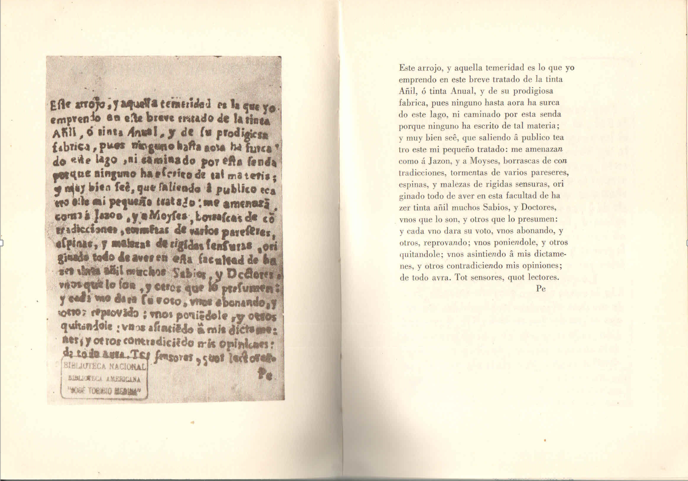 Este arrojo, y aquella temeridad es lo que yo
emprendo en este breve tratado de la tinta
Añil, ó tinta Anual, y de su prodigiosa
fabrica, pues ninguno hasta aora ha surca
do este lago, ni caminado por esta senda
porque ninguno ha escrito de tal materia;
y muy bien seê, que saliendo â publico tea
tro este mi pequeño tratado: me amenazā
como â Jazon, y a Moyses, borrascas de cō
tradicciones, tormētas de varios pareseres,
espinas, y malezas de rigidas sensuras, ori
ginado todo de aver en esta facultad de ha
zer tinta añil muchos Sabios, y Doctores,
vnos que lo son, y otros que lo presumen:
y cada vno dara su voto, vnos abonando, y
otros; reprovādo; vnos poniēdole, y otros
quitandole: vnos asintiēdo â mis dictame-
nes, y otros contradiciēdo mis opiniones:
de todo avra. Tot sensores, quot lectores.
Pe
BIBLIOTECA NACIONAL
BIBLIOTECA AMERICANA
"JOSÉ TORIBIO MEDINA"
Este arrojo, y aquella temeridad es lo que yo
emprendo en este breve tratado de la tinta
Añil, ó tinta Anual, y de su prodigiosa
fabrica, pues ninguno hasta aora ha surca
do este lago, ni caminado por esta senda
porque ninguno ha escrito de tal materia;
y muy bien seê, que saliendo â publico tea
tro este mi pequeño tratado: me amenazan
como â Jazon, y a Moyses, borrascas de con
tradicciones, tormentas de varios pareseres,
espinas, y malezas de rigidas sensuras, ori
ginado todo de aver en esta facultad de ha
zer tinta añil muchos Sabios, y Doctores,
vnos que lo son, y otros que lo presumen:
y cada vno dara su voto, vnos abonando, y
otros, reprovando; vnos poniendole, y otros
quitandole; vnos asintiendo â mis dictame-
nes, y otros contradiciendo mis opiniones;
de todo avra. Tot sensores, quot lectores.
Pe